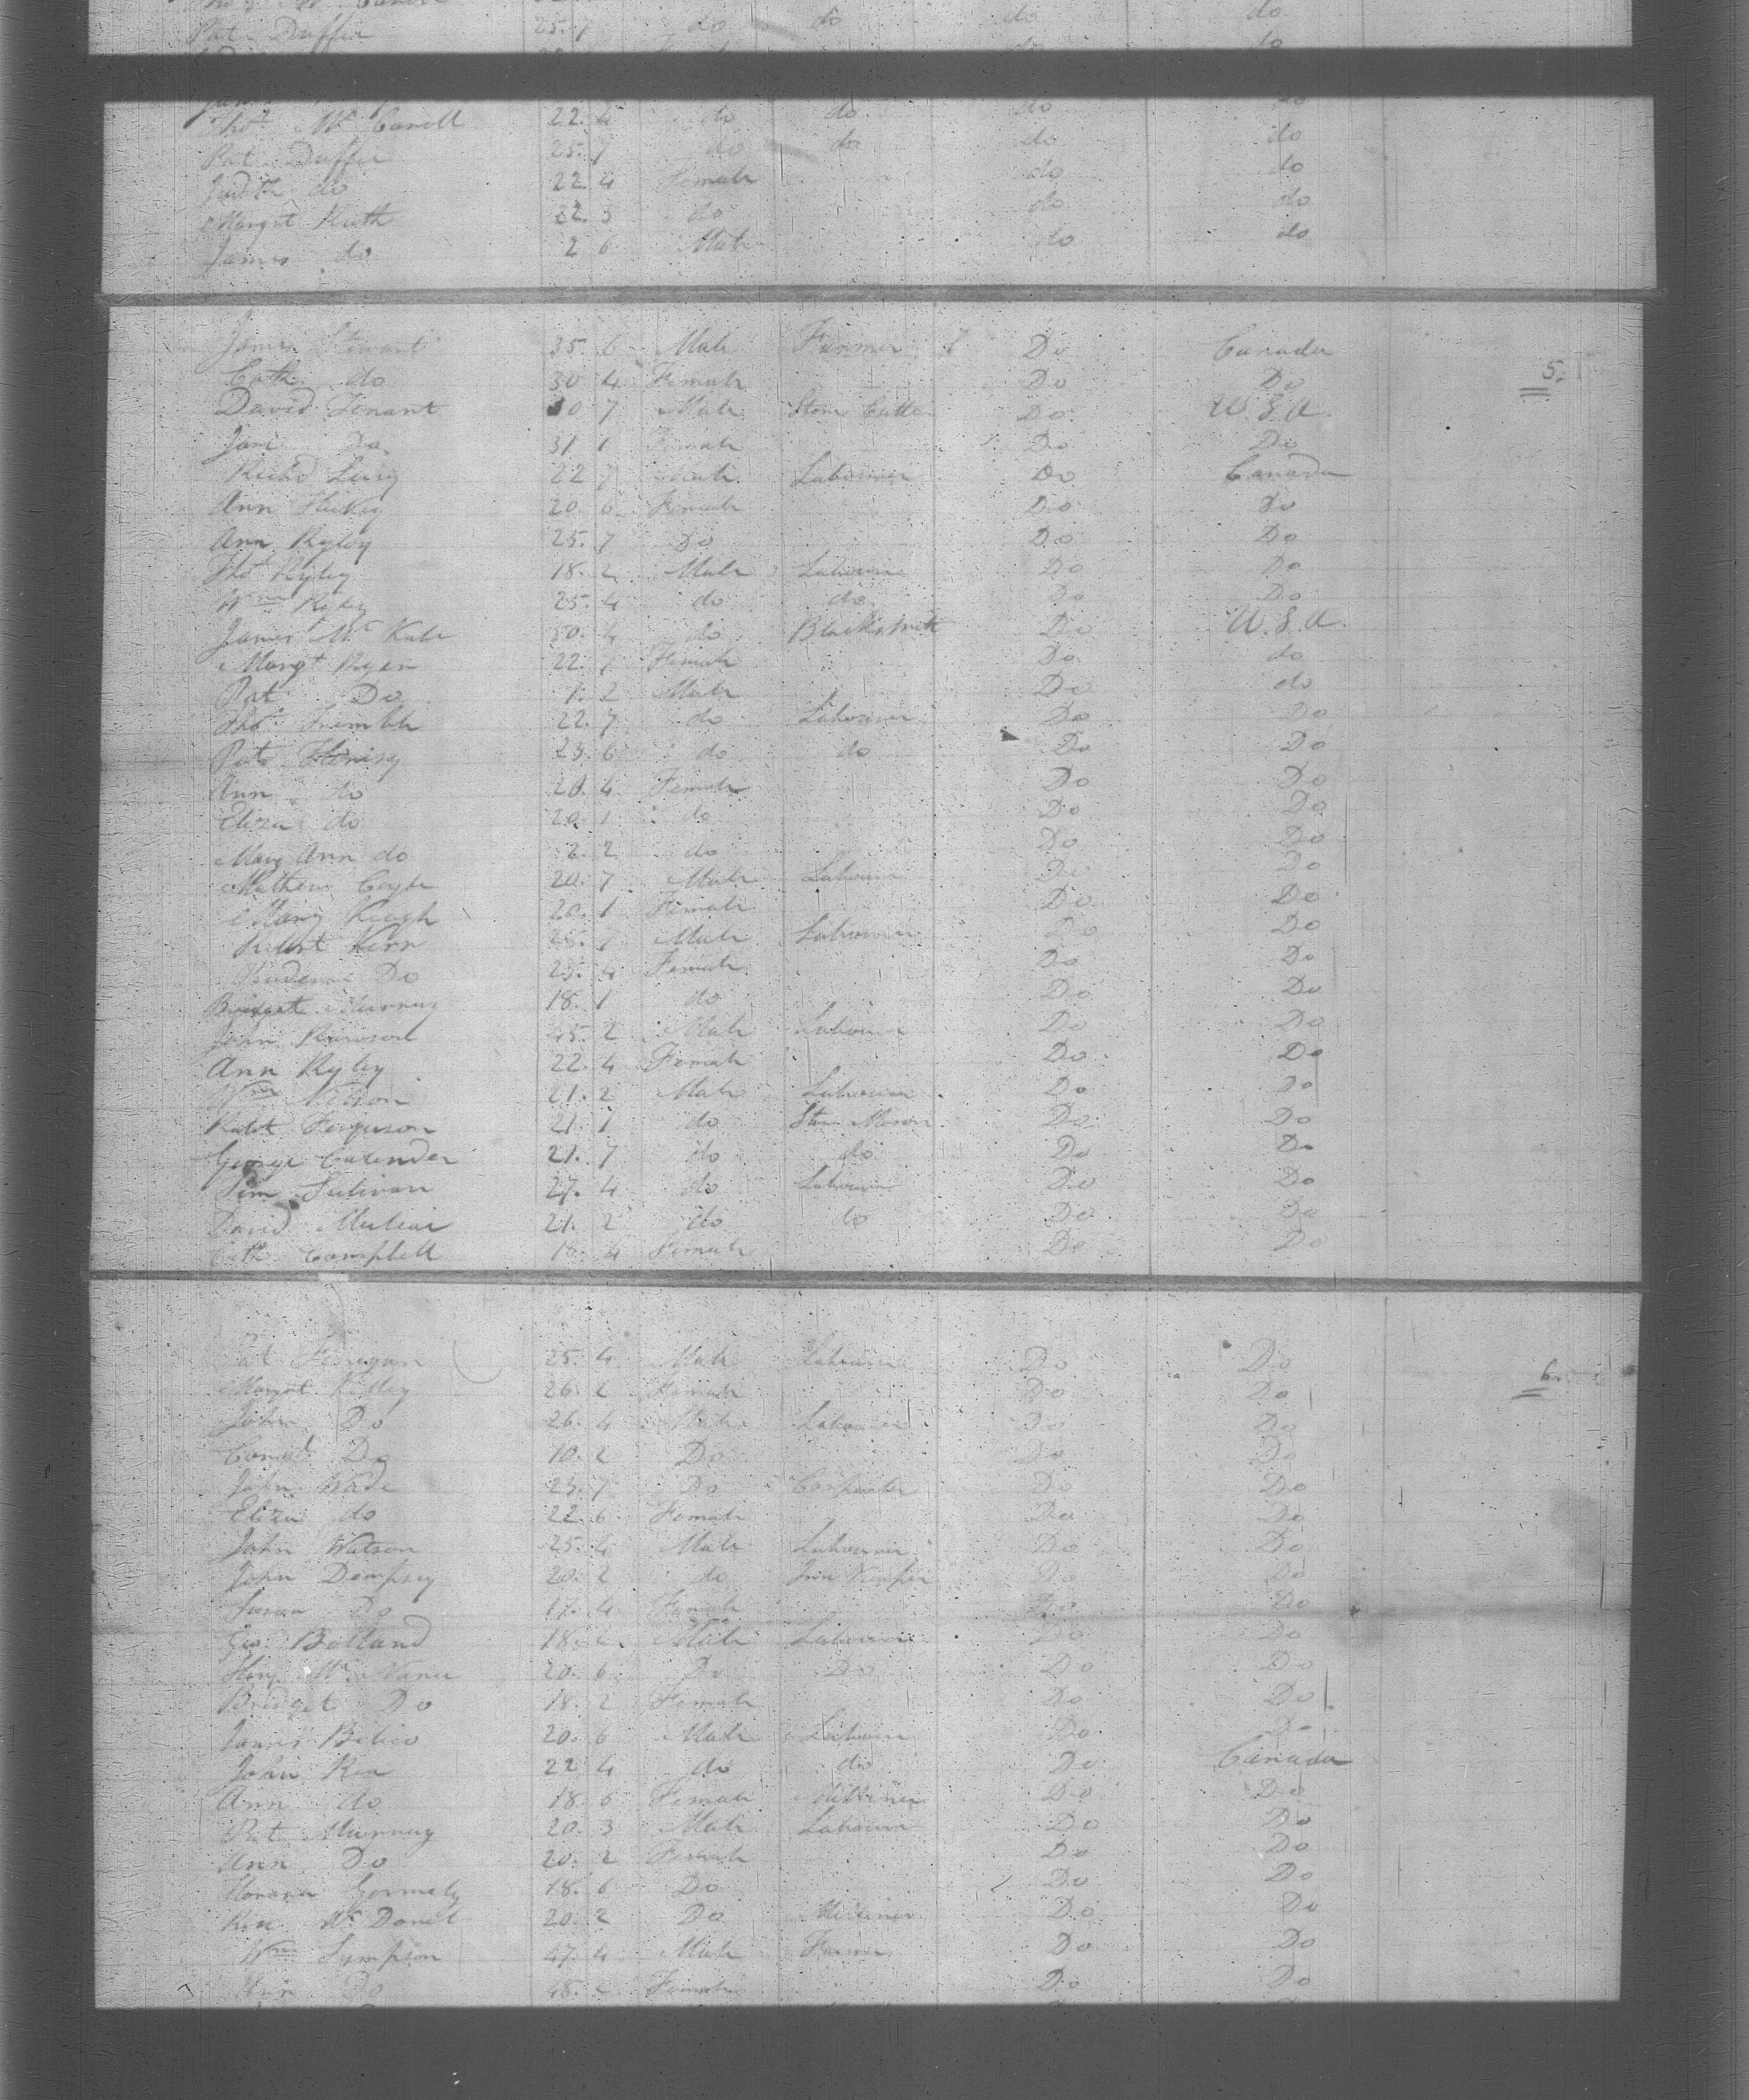 Pat Duffin 25. 7 do do do do
do
Thos Mc Carell 22. 4 do do do do
Pat Duffin 25. 7 do do do do
Judith do 22. 4 Female do do
Margt Ruth 22. 3 do do do
James do 2 6 Male do do
James Stewart 35. 6 Male Farmer Do Canada
Cath do 30 4 Female Do Do 5.
David Tenant 30 7 Male Stone Cutter Do U.S.A.
Jane Do 31 1 Female Do Do
Richd 22 7 Male Labourer Do Canada
Ann 20. 6. Female Do Do
Ann Ryley 25. 7 Do Do Do
Thos Ryley 18. 2 Male Labourer Do Do
Wm Ryley 25. 4 do do Do Do
James Mc Kabe 4 do Blacksmith Do U.S.A.
Margt Ryan 22. 1 Female Do do
Pat Do 1. 2 Male Do do
Thos Tremble 22. 7 do Labourer Do Do
Pat 23. 6 do do Do Do
Ann do 20. 4 Female Do Do
Eliza do 20. 1 do Do Do
Mary Ann do 2. 2 do Do Do
Mathew Coyle 20. 7 Male Labourer Do Do
Mary Keogh 20. 1 Female Do Do
Robert Kirn 7 Male Labourer Do Do
Do 25. 4 Female Do Do
Bridget Murray 18. 1 do Do Do
John 45. 2 Male Labourer Do Do
Ann Ryley 22. 4 Female Do Do
Wm Nelson 21. 2 Male Labourer Do Do
Robt Ferguson 21 1 do Stone Mason Do Do
George Calender 21. 7 do do Do Do
Tim Sulivan 27. 4 do Labourer Do Do
David 21. 2 do do Do Do
Cath Campbell 4 Female Do Do
Pat Finegan 25. 4 Male Labourer Do Do
Margt 26. 2 Female Do Do 6.
John Do 26. 4 Male Labourer Do Do
Do 10. 2 Do Do Do
John Wade 23. 7 Do Carpenter Do Do
Eliza do 22. 6 Female Do Do
John Watson 25. 4 Male Labourer Do Do
John Dempsey 20. 2 do Do Do
Susan Do 17. 4 Female Do Do
Geo Bolland 18. 2. Male Labourer Do Do
Mc 20. 6 Do Do Do Do
Bridget Do 18. 2 Female Do Do
James 20. 6 Male Labourer Do Do
John Rea 22 4 do do Do Canada
Ann do 18 6 Female Milliner Do Do
Pat Murray 20. 3 Male Labourer Do Do
Ann Do 20. 2 Female Do Do
Gormely 18. 6 Do Do Do
Rose Mc Donel 20. 2 Do Milliner Do Do
Wm Sympson 47. 4 Male Farmer Do Do
Ann Do 48. 2 Female Do Do